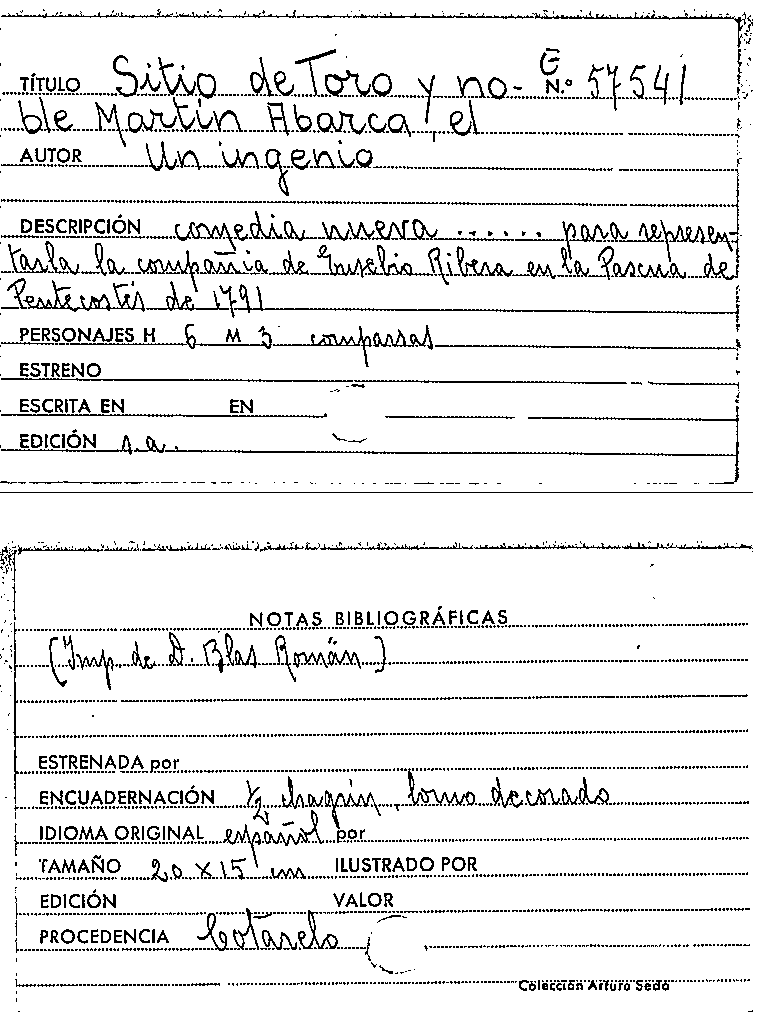 TÍTULO Sitio de Toro y no- G N.º 57541
ble Martín Abarca, el
AUTOR Un ingenio
DESCRIPCIÓN comedia nueva ...... para represen-
tarla la compañia de Eusebio Ribera en la Pascua de
Pentecostés de 1791
PERSONAJES H 6 M 3 comparsas
ESTRENO
ESCRITA EN EN
EDICIÓN s.a.
NOTAS BIBLIOGRÁFICAS
(Imp. de D. Blas Román)
ESTRENADA por
ENCUADERNACIÓN 1/2 chagrin, lomo decorado
IDIOMA ORIGINAL español por
TAMAÑO 20 X 15 cm ILUSTRADO POR
EDICIÓN VALOR
PROCEDENCIA Cotarelo
Colección Arturo Sedó